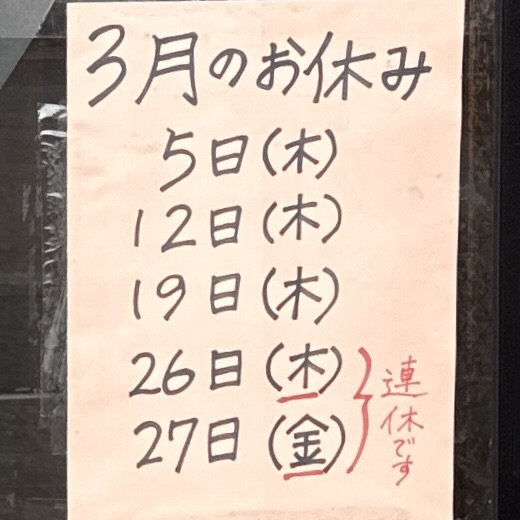 3月のお休み
5日(木)
12日(木)
19日(木)
26日(木)
27日(金)
連休です